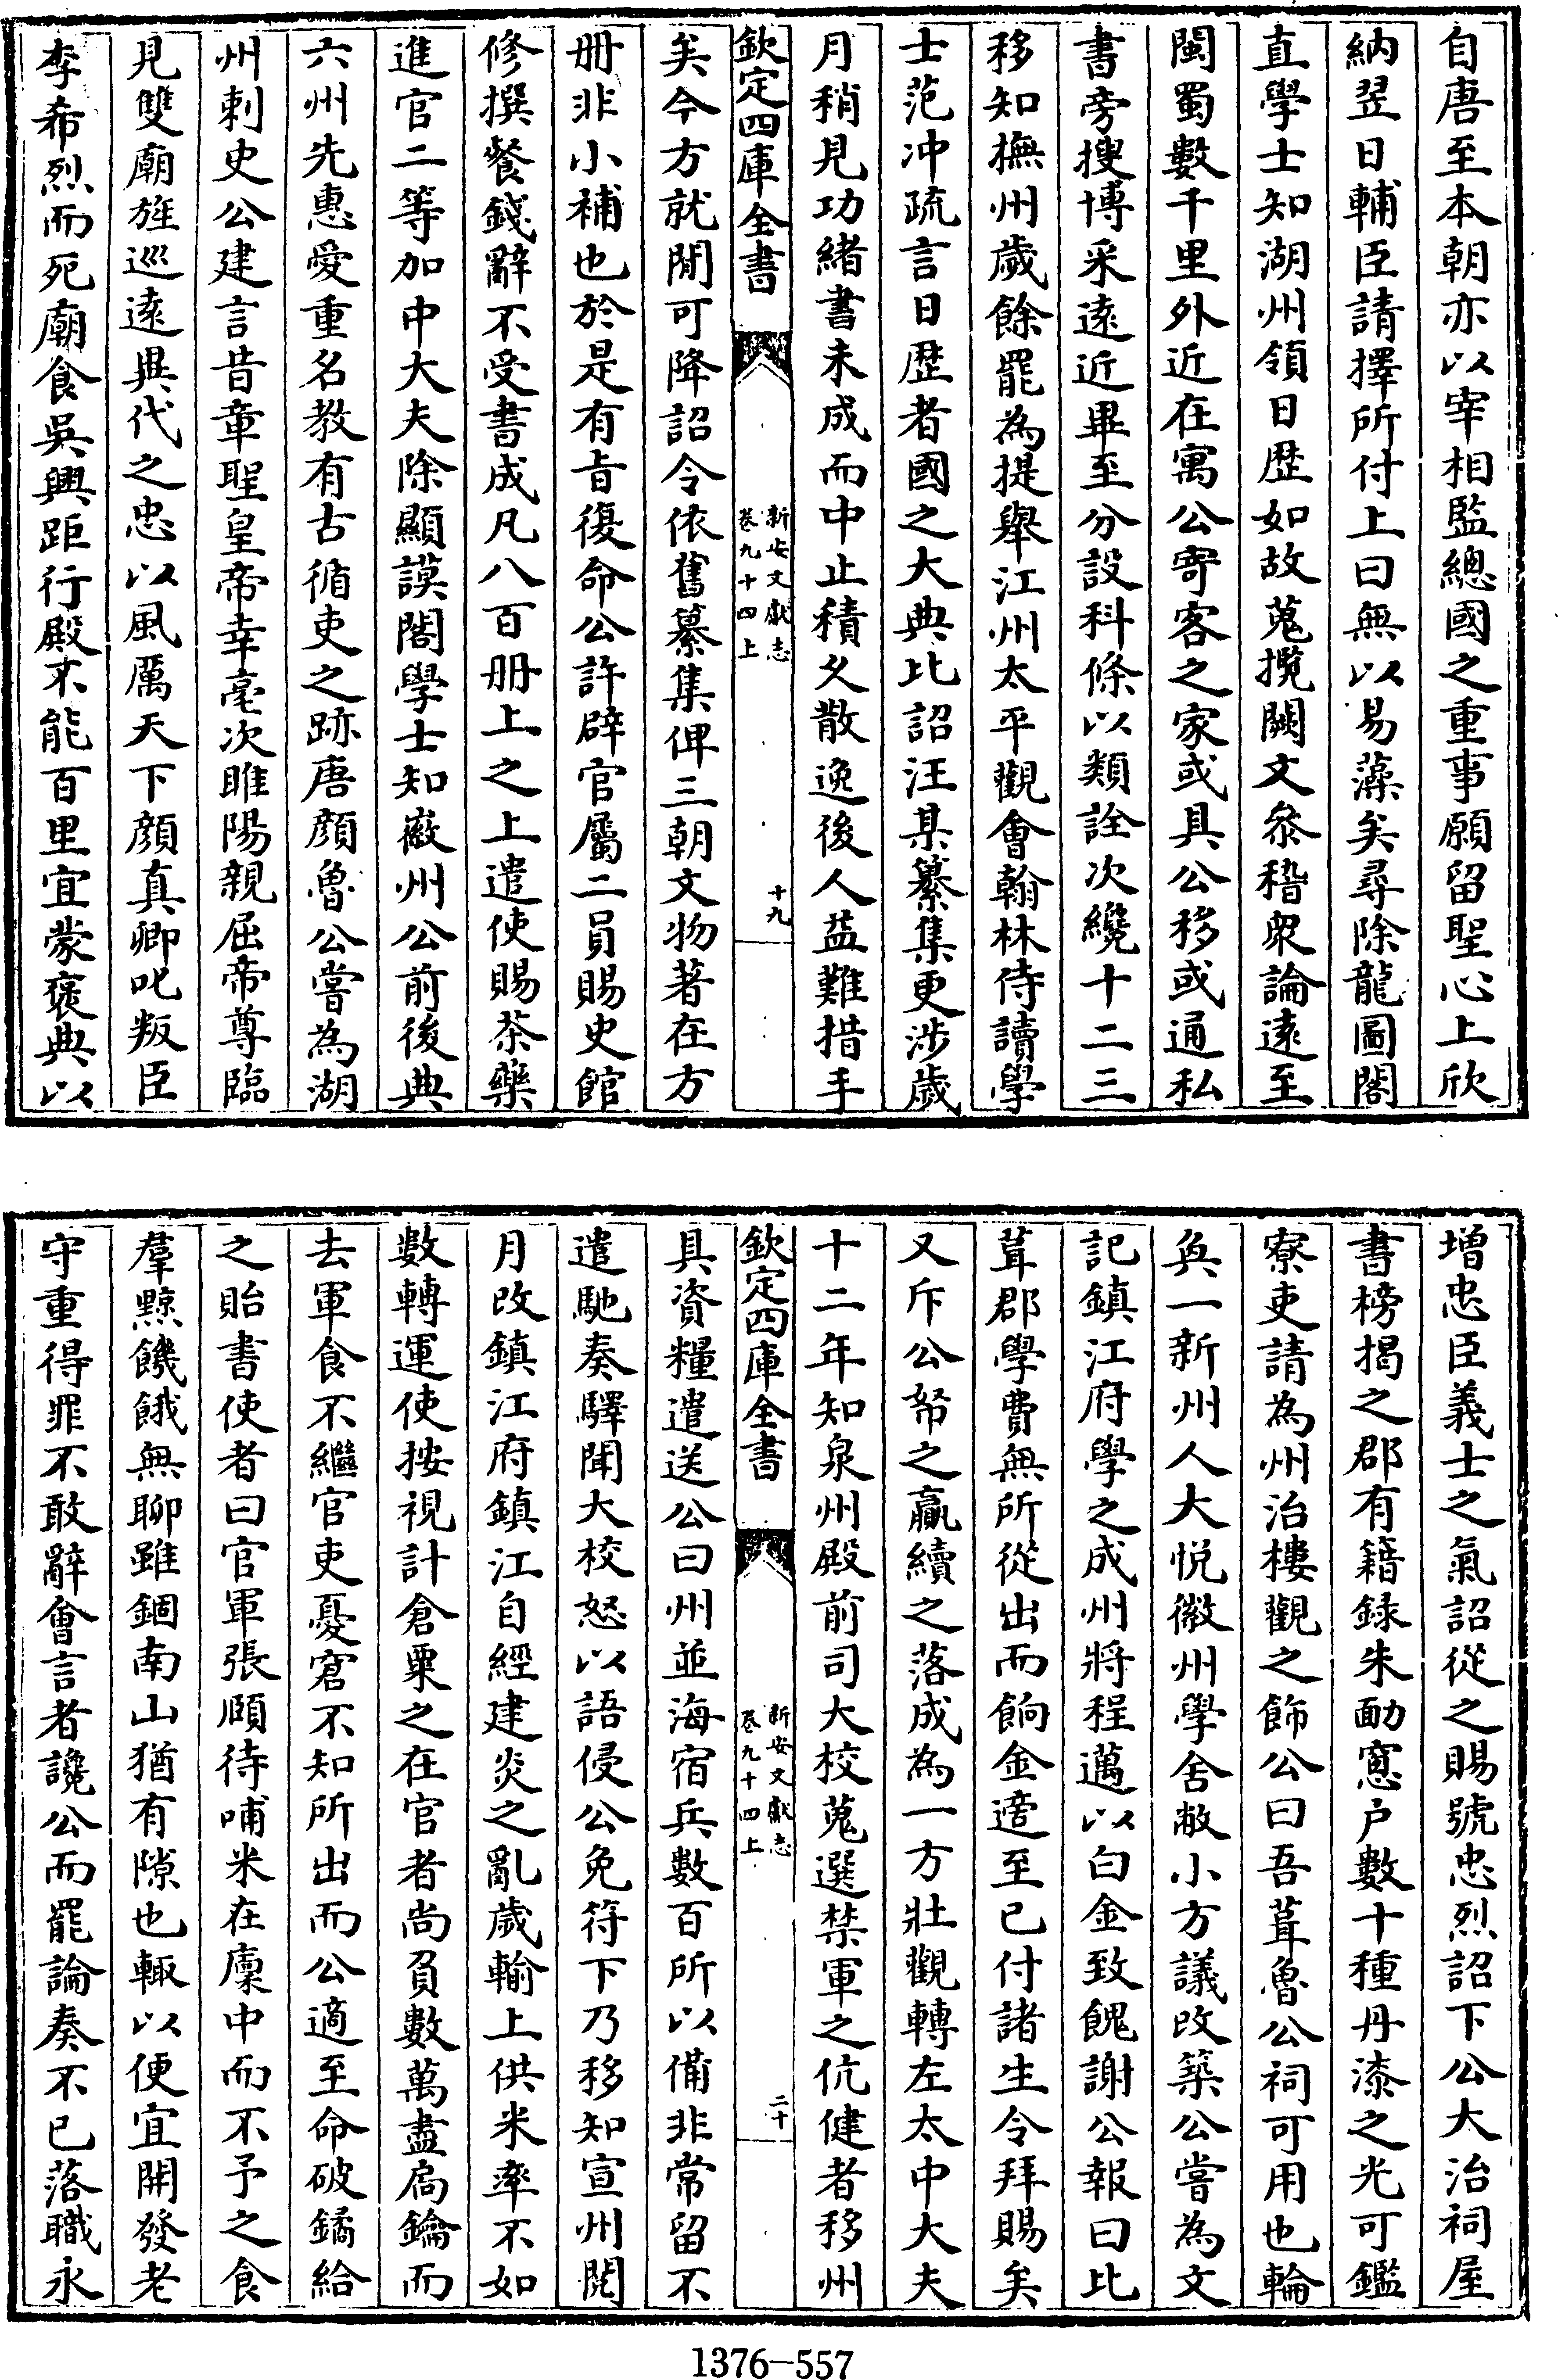 自唐至本朝亦以宰相監總國之重事願留聖心上欣
納翌日輔臣請擇所付上曰無以易藻矣尋除龍圖閣
直學士知湖州領日歴如故蒐攬闕文叅稽衆論逺至
閩蜀數千里外近在寓公寄客之家或具公移或通私
書旁搜博采逺近畢至分設科條以類詮次纔十二三
移知撫州歲餘罷為提舉江州太平觀會翰林侍讀學
士范冲疏言日歴者國之大典比詔汪某纂集更涉歲
月稍見功緒書未成而中止積久散逸後人益難措手
欽定四庫全書
新安文獻志
卷九十四上
十九
矣今方就閒可降詔令依舊纂集俾三朝文物著在方
册非小補也於是有旨復命公許辟官屬二員賜史館
修撰餐錢辭不受書成凡八百册上之上遣使賜茶藥
進官二等加中大夫除顯謨閣學士知徽州公前後典
六州先惠愛重名教有古循吏之跡唐顔魯公嘗為湖
州刺史公建言昔章聖皇帝幸亳次睢陽親屈帝尊臨
見雙廟旌巡逺異代之忠以風厲天下顔真卿叱叛臣
李希烈而死廟食吳興距行殿不能百里宜蒙褒典以
增忠臣義士之氣詔從之賜號忠烈詔下公大治祠屋
書榜揭之郡有籍録朱勔窻户數十種丹漆之光可鑑
寮吏請為州治樓觀之飾公曰吾葺魯公祠可用也輪
奐一新州人大悦徽州學舍敝小方議改築公嘗為文
記鎮江府學之成州將程邁以白金致餽謝公報曰比
葺郡學費無所從出而餉金適至已付諸生令拜賜矣
又斥公帑之羸續之落成為一方壯觀轉左太中大夫
十二年知泉州殿前司大校蒐選禁軍之伉健者移州
欽定四庫全書
新安文獻志
卷九十四上
二十
具資糧遣送公曰州並海宿兵數百所以備非常留不
遣馳奏驛聞大校怒以語侵公免符下乃移知宣州閱
月改鎮江府鎮江自經建炎之亂歲輸上供米率不如
數轉運使按視計倉粟之在官者尚負數萬盡扃鑰而
去軍食不繼官吏憂窘不知所出而公適至命破鐍給
之貽書使者曰官軍張頤待哺米在廩中而不予之食
羣黥饑餓無聊雖錮南山猶有隙也輙以便宜開發老
守重得罪不敢辭會言者讒公而罷論奏不已落職永
1376-557